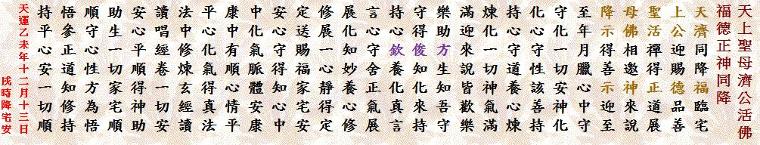 天上聖母濟公活佛
福德正神同降
天濟同降福臨宅
上公迎賜德品善
聖活禪得正道展
母佛相邀神來說
降示得善示迎至
至年月臘心中守
守化一切安神化
化心守性該善持
持心守道養心煉
煉化一切道心滿
滿迎來說皆歡樂
樂助方生知吾守
守得俊知化來持
持心欽養化真言
言心守舍正氣展
展化知妙養心修
修展一心靜得定
定送賜福家宅安
安心守德知心中
中化氣脈體安康
康中有順心情平
平心化氣得真法
法中修煉玄經讀
讀唱經卷一切安
安心平順得神助
助生一切家宅順
順守心性方為悟
悟參正道知修持
持平心安一切順
天運乙未年十二月十三日
戌時降宅安